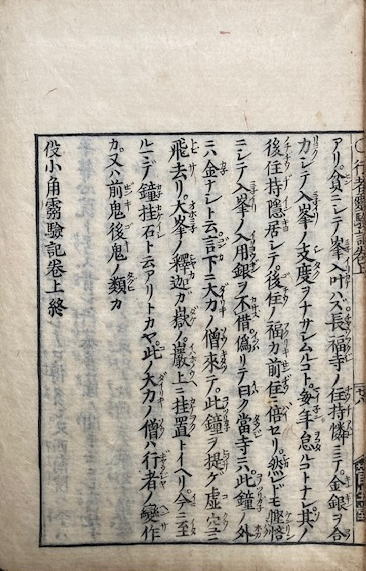 行者靈驗記卷上
アリ。貧ニシテ峯入叶ハズ。長福寺ノ住持憐ミテ。金銀ヲ合
力シテ入峯ノ支度ヲナサシムルコト。毎年怠ルコトナシ。其ノ
後住持隱居シテ。後住ノ福力前住ニ倍セリ。然レドモ慳悋
ニシテ入峯ノ入用銀ヲ不借。偽リテ曰ク。當寺ニハ此鐘ノ外
ニハ金ナシト云。言下ニ大力ノ僧來テ。此鐘ヲ提ゲ虚空ニ
飛去リ。大峯ノ釋迦ガ嶽ノ巖上ニ挂置トイヘリ。今ニ至
ルマデ鐘挂石ト云アリトカヤ。此ノ大力ノ僧ハ行者ノ變作
カ。又ハ前鬼後鬼ノ類カ
役小角靈驗記卷上終